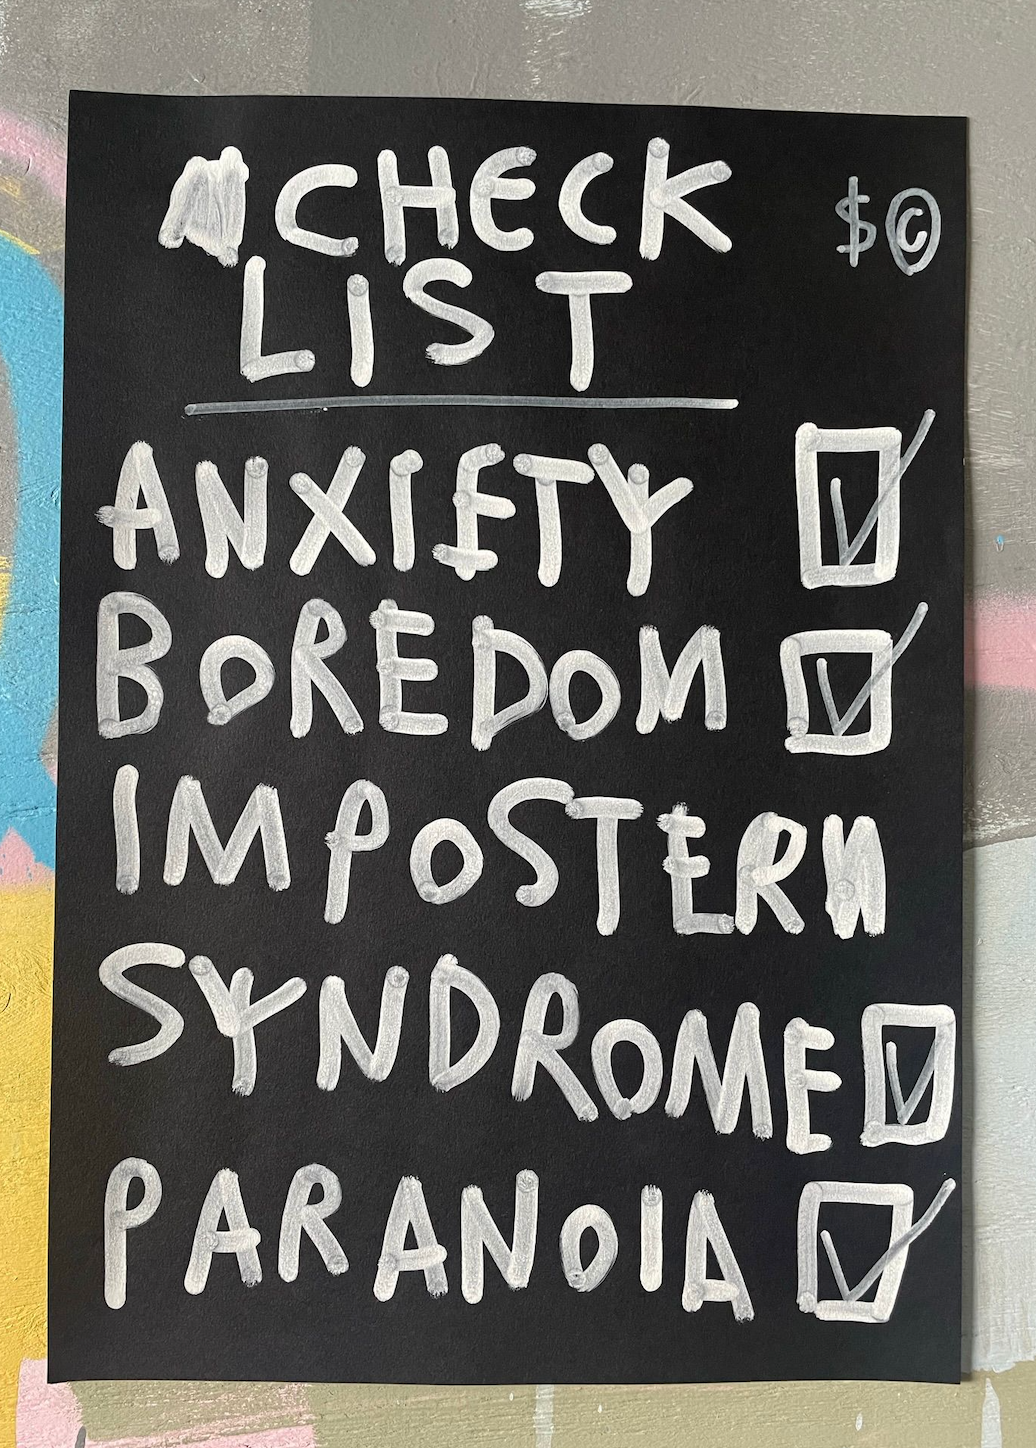 CHECK $©
LIST
ANXIETY ☑
BOREDOM ☑
IMPOSTER
SYNDROME ☑
PARANOIA ☑